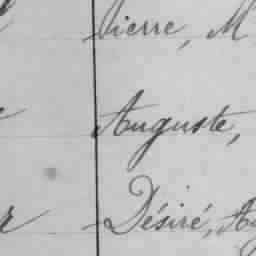 Pierre, M
Auguste,
Désiré, Au